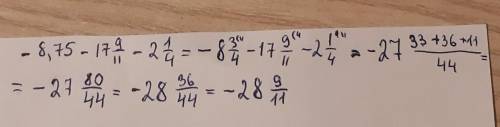 - 8,75 - 17 9/11 - 2 1/4 = - 8 3/4 - 17 9/11 - 2 1/4 = - 27 33+36+11/44 =
= - 27 80/44 = - 28 36/44 = - 28 9/11